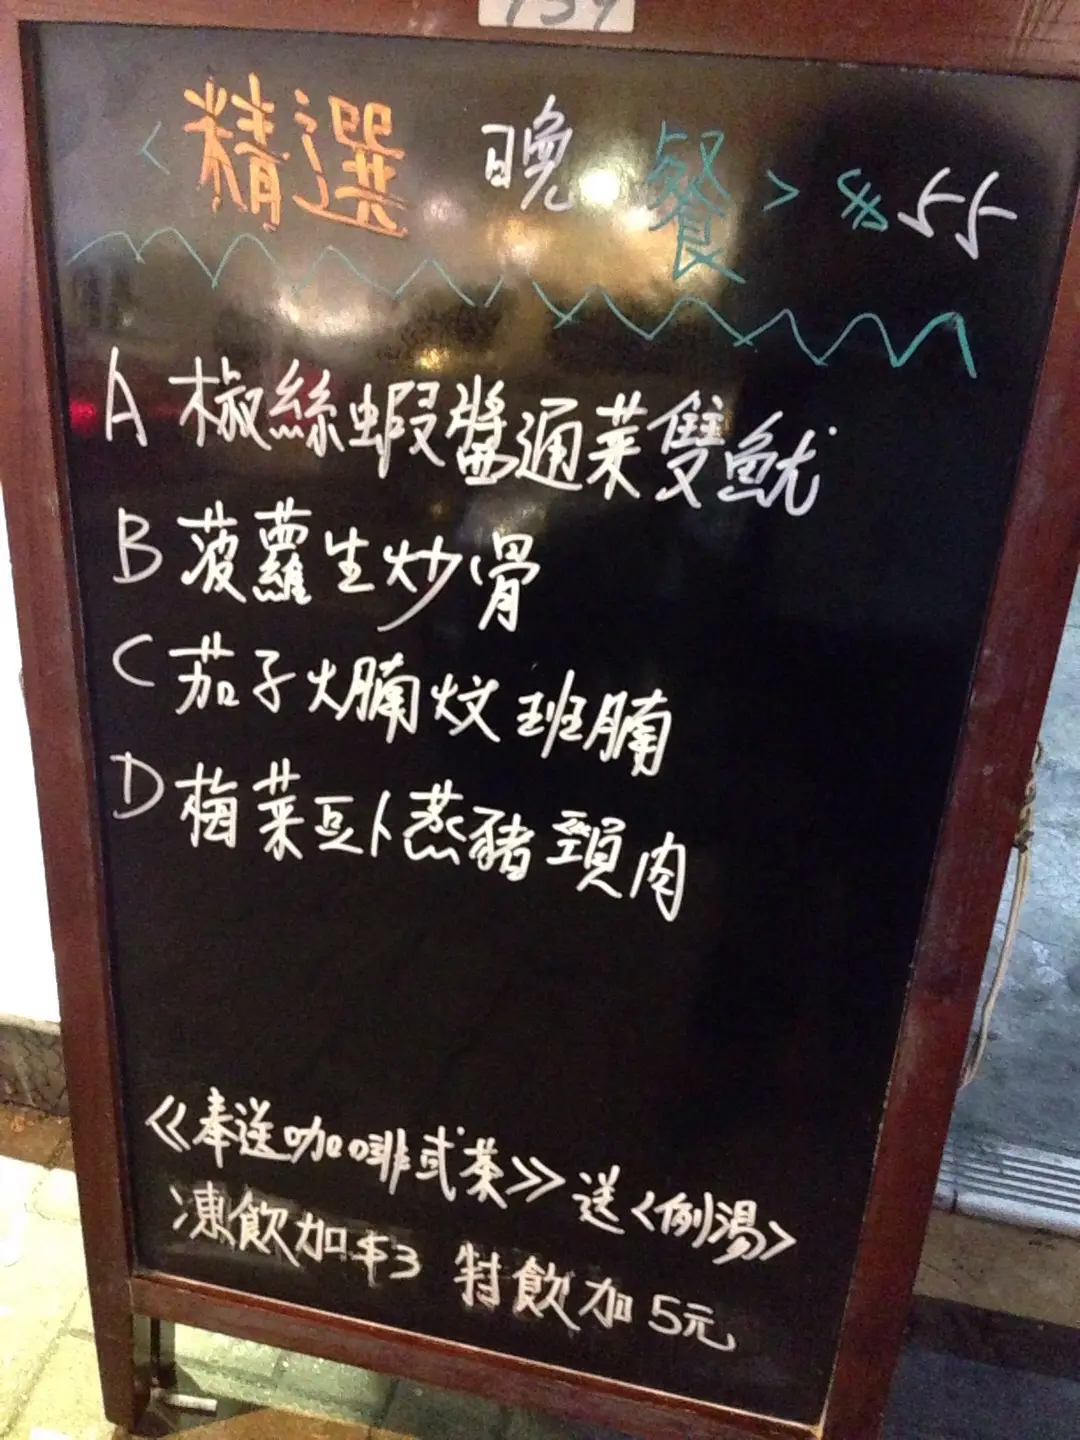 <精選 晚 餐> $55
A 椒絲蝦醬通菜雙魷
B 菠蘿生炒骨
C 茄子火腩炆班腩
D 梅菜豆卜蒸豬頸肉
《奉送咖啡或茶》送<例湯>
凍飲加$3 特飲加5元